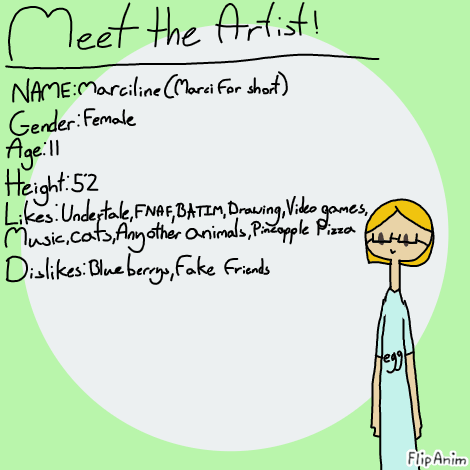 Meet the Artist!
NAME:Marciline(Marci For short)
Gender:Female
Age:11
Height:5'2
Likes:Undertale,FNAF,BATIM,Drawing,Video games,
Music,cats,Any other animals,Pineapple Pizza
Dislikes:Blueberrys,Fake Friends
egg
FlipAnim